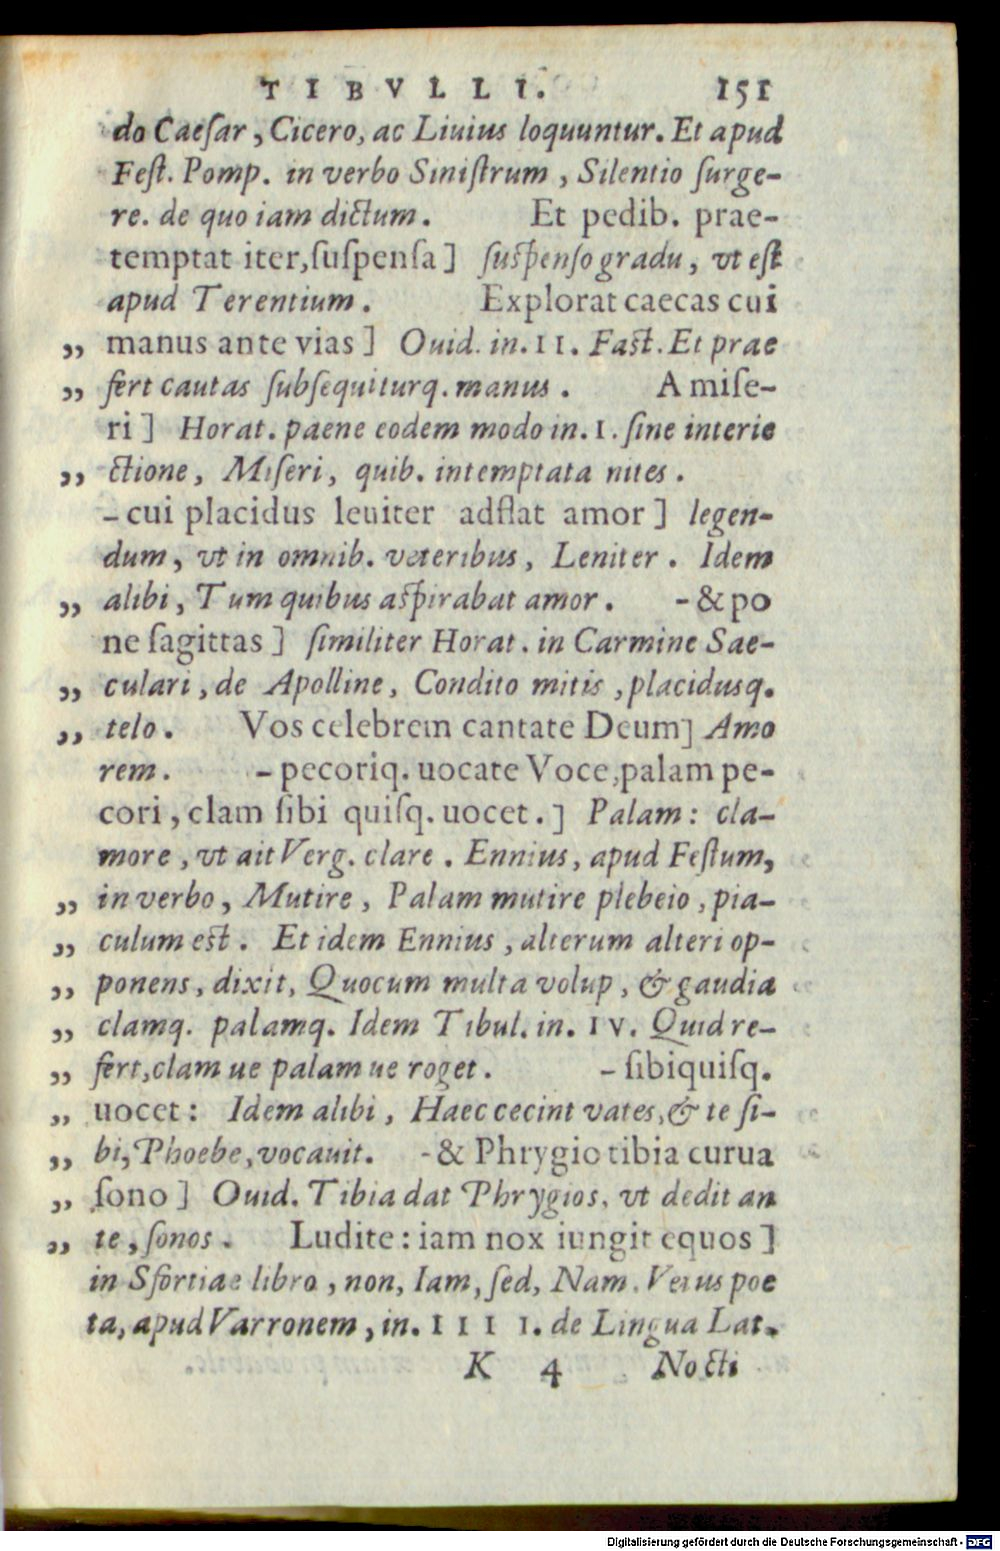 TIBVLLI. 151
do Caeſar, Cicero, ac Liuius loquuntur. Et apud
Feſt. Pomp. in verbo Siniſtrum, Silentio ſurge-
re. de quo iam dictum. Et pedib. prae-
temptat iter, ſuſpenſa] ſuſpenſo gradu, vt eſt
apud Terentium. Explorat caecas cui
„ manus ante vias] Ouid. in. II. Faſt. Et prae
„ fert cautas ſubſequiturq. manus. A miſe-
ri] Horat. paene eodem modo in. I. ſine interie
„ ctione, Miſeri, quib. intemptata nites.
-cui placidus leuiter adflat amor] legen-
dum, vt in omnib. veteribus, Leniter. Idem
„ alibi, Tum quibus aſpirabat amor. -& po
ne ſagittas] ſimiliter Horat. in Carmine Sae-
„ culari, de Apolline, Condito mitis, placidusq.
„ telo. Vos celebrem cantate Deum] Amo
rem. -pecoriq. uocate Voce, palam pe-
cori, clam ſibi quiſq. uocet.] Palam: cla-
more, vt ait Verg. clare. Ennius, apud Feſtum,
„ in verbo, Mutire, Palam mutire plebeio, pia-
„ culum eſt. Et idem Ennius, alterum alteri op-
„ ponens, dixit, Quocum multa volup, & gaudia
„ clamq. palamq. Idem Tibul. in. IV. Quid re-
„ fert, clam ue palam ue roget. -ſibi quiſq.
„ uocet: Idem alibi, Haec cecint vates, & te ſi-
„ bi, Phoebe, vocauit. -& Phrygio tibia curua
„ ſono] Ouid. Tibia dat Phrygios, vt dedit an
„ te, ſonos. Ludite: iam nox iungit equos]
in Sfortiae libro, non, Iam, ſed, Nam. Vetus poe
ta, apud Varronem, in. IIII. de Lingua Lat.
K 4 Nocti
Digitalisierung gefördert durch die Deutsche Forschungsgemeinschaft - DFG